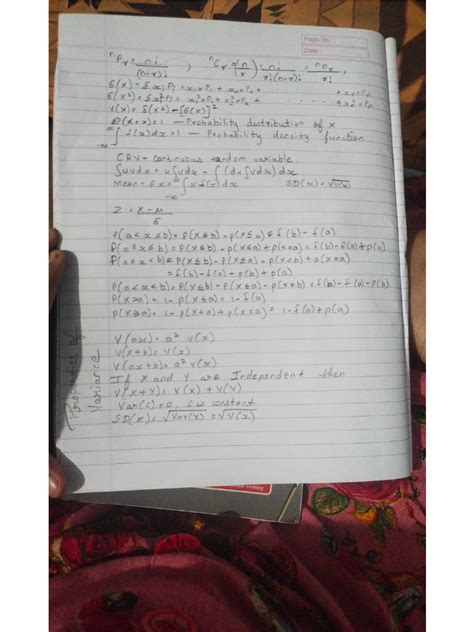 Page No.
Date
ⁿPᵣ = n! / (n-r)! , ⁿCᵣ = (n r) = n! / r!(n-r)! = ⁿPᵣ / r! ,
E(x) = Σxᵢ Pᵢ = x₁×P₁ + x₂×P₂ + ... + xₙ×Pₙ
E(x²) = Σxᵢ²Pᵢ = x₁²×P₁ + x₂²×P₂ + ... + xₙ²×Pₙ
V(x) = E(x²) - [E(x)]²
ΣP(X=x) = 1 — Probability distribution of X
∫ f(x)dx = 1 — Probability density function
CRV - continuous random variable.
∫uvdx = u∫vdx - ∫(du∫vdx)dx
Mean = Ex = ∫ x f(x) dx SD(x) = √V(x)
Z = x-μ / σ
P(a<x≤b) = P(x≤b) - P(x≤a) = f(b) - f(a)
P(a≤x≤b) = P(x≤b) - P(x≤a) + P(x=a) = f(b) - f(a) + p(a)
P(a≤x<b) = P(x≤b) - P(x≤a) - P(x=b) + P(x=a)
= f(b) - f(a) - p(b) + p(a)
P(a<x<b) = P(x≤b) - P(x≤a) - P(x=b) = f(b) - f(a) - P(b)
P(x>a) = 1 - P(x≤a) = 1 - f(a)
P(x≥a) = 1 - P(x≤a) + P(x=a) = 1 - f(a) + p(a)
Properties of
Variance
V(ax) = a² V(x)
V(x+b) = V(x)
V(ax+b) = a² V(x)
If X and Y are Independent then
V(x+Y) = V(x) + V(Y)
Var(C) = 0, C is constant
SD(x) = √Var(x) = √V(x)